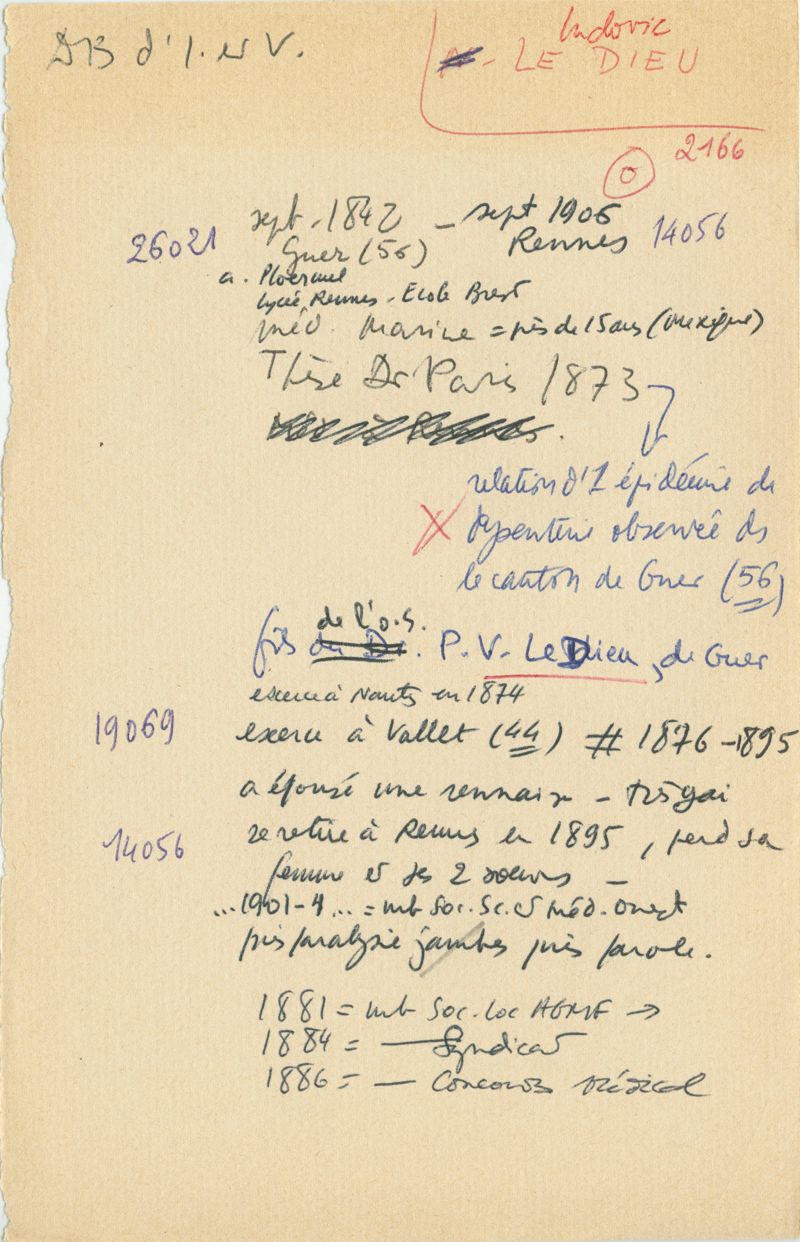 DB d'I. et V.
Ludovic
- LE DIEU
2166
0
sept. 1842 - sept 1906
26021 Guer (56) Rennes 14056
a. Ploermel
Lycée Rennes - Ecole Brest
méd. Marine = près de 15 ans (Mexique)
Thèse Dr Paris 1873
relation d'1 épidémie de
X dysenterie observée ds
le canton de Guer (56)
de l'o.s.
fils du Dr. P.V. Le Dieu, de Guer
exerce à Nantes en 1874
19069 exerce à Vallet (44) # 1876-1895
a épousé une rennaise - très gai
14056 se retire à Rennes en 1895, perd sa
femme et ses 2 soeurs -
...1901-4... = mb Soc. Sc. et méd. Ouest
puis paralysie jambes puis parole.
1881 = mb Soc. Loc AGMF →
1884 = — Syndicat
1886 = — Concours Médical